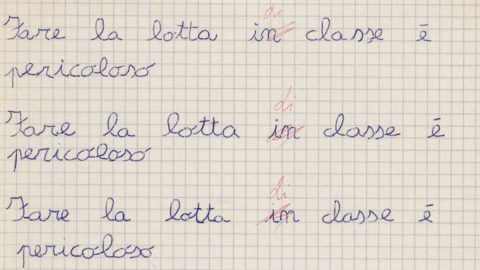 di
Fare la lotta in classe é
pericoloso
di
Fare la lotta in classe é
pericoloso
di
Fare la lotta in classe é
pericoloso